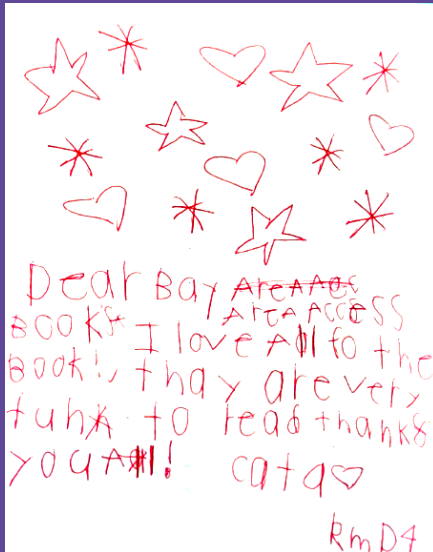 Dear Bay AreAAcc
AreA Access
BOOKs I love All fo the
BOOK!, thay are very
funn to read thanks
you All! cata
Rm D4